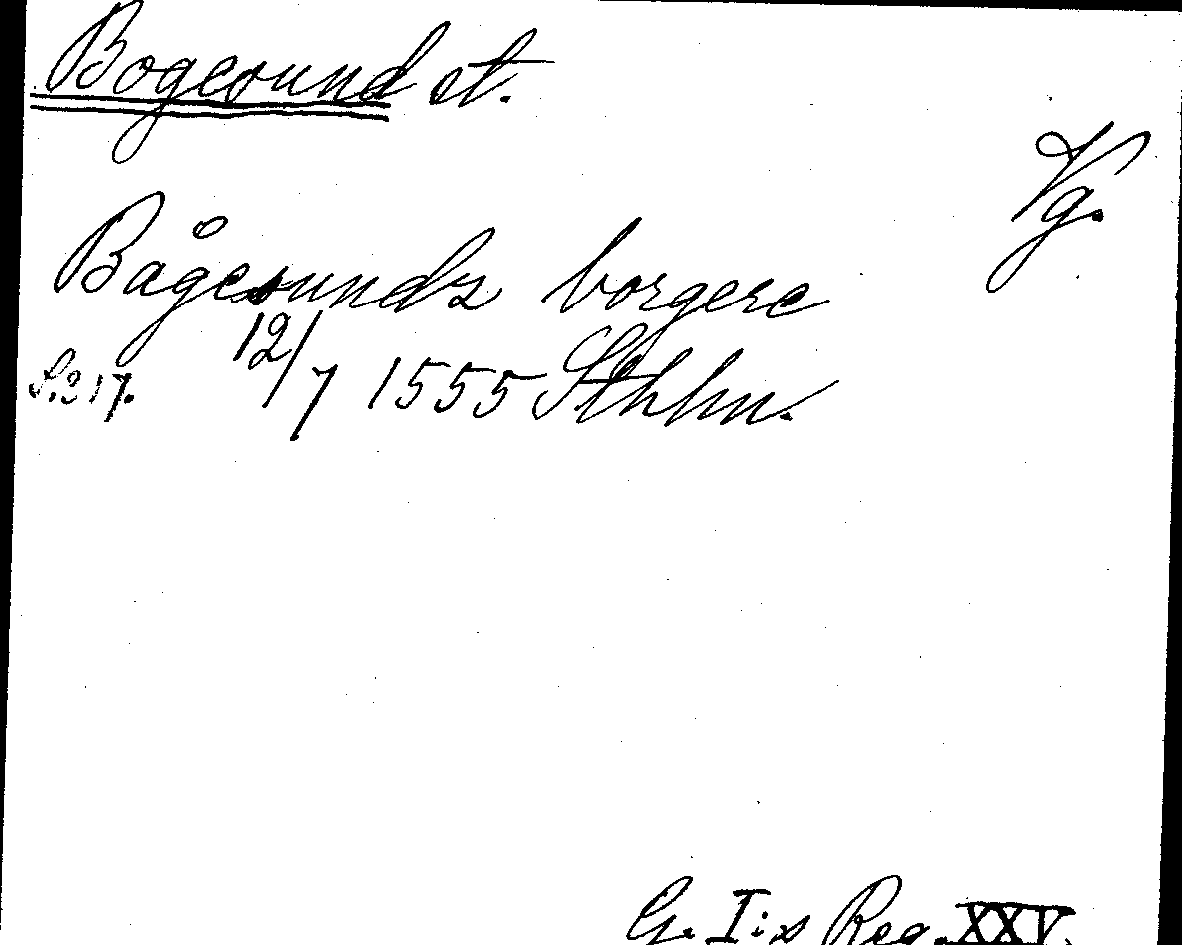 Bogesund st.
Vg.
Bågesundz borgere
S. 217. 12/7 1555 Sthlm.
G. I:s Reg. XXV.